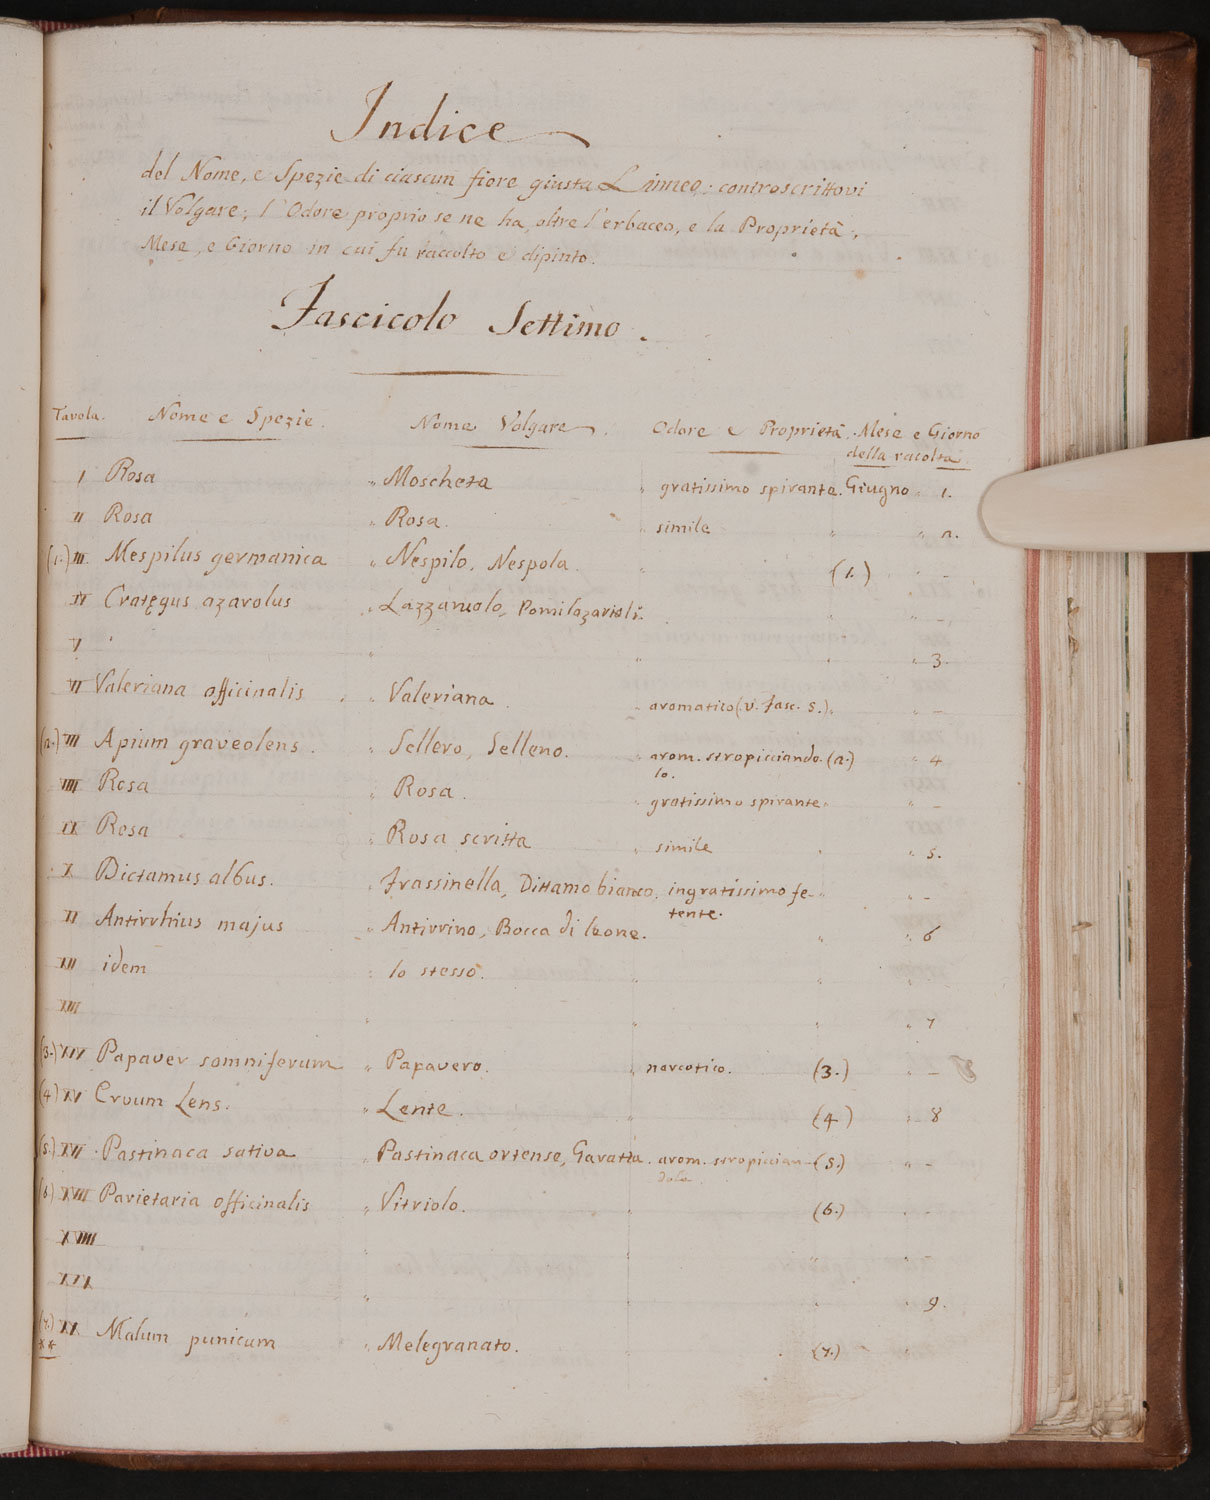 Indice
del Nome, e Spezie di ciascun fiore giusta Linneo: controscrittovi
il Volgare, l'Odore proprio se ne ha, oltre l'erbaceo, e la Proprietà,
Mese, e Giorno in cui fu raccolto e dipinto.
Fascicolo Settimo.
Tavola. Nome e Spezie. Nome Volgare. Odore e Proprietà. Mese e Giorno
della racolta.
I Rosa " Moscheta " gratissimo spirante. Giugno " 1.
II Rosa " Rosa. " simile " " 2.
(1.) III. Mespilus germanica " Nespilo, Nespola. " (1.) " –
IV Cratęgus azarolus " Lazzaruolo, Pomilazarioli. " " –
V " " " " 3.
VI Valeriana officinalis " Valeriana. " aromatico (v. fasc. 5.) " " –
(2.) VII Apium graveolens. " Sellero, Selleno. " arom. stropicciando- (2.) " 4
lo.
VIII Rosa " Rosa. " gratissimo spirante " " –
IX Rosa " Rosa scritta " simile " " 5.
X Dictamus albus. " Frassinella, Dittamo bianco. ingratissimo fe- " " –
tente.
XI Antirrhius majus " Antirrino, Bocca di leone. " " 6
XII idem " lo stesso. " " "
XIII " " " " 7
(3.) XIV Papaver somniferum " Papavero. " narcotico. (3.) " –
(4) XV Ervum Lens. " Lente. " (4) " 8
(5.) XVI Pastinaca sativa " Pastinaca ortense, Garatta. arom. stropiccian- (5.) " –
dola.
(6) XVII Parietaria officinalis " Vitriolo. " (6.) " –
XVIII " –
XIX " " " " 9.
(7.) XX Malum punicum " Melegranato. " (7.) "
**